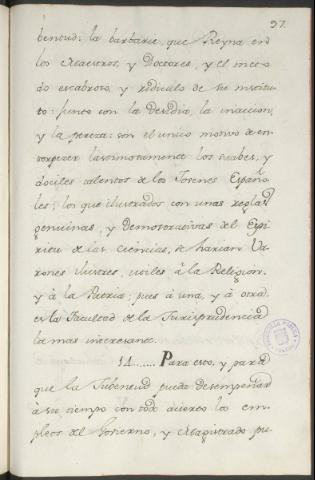 37.
bentud: la barbarie, que Reyna en
los Maestros, y Doctores, y el meto
do escabroso, y ridiculo de su institu
to: junto con la Desidia, la inaccion,
y la pereza: son el unico motivo de en
torpecer lastimosamente los suabes, y
dociles talentos de los Jovenes Españo
les; los que ilustrados con unas reglas
genuinas, y demostrativas del Espi
ritu de las Ciencias, se harian Va
rones ilustres, utiles â la Religion,
y â la Patria; pues â una, y â otra,
es la Facultad de la Jurisprudencia
la mas interesante.
14....... Para esto, y para
que la Jubentud pueda desempeñar
â su tiempo con todo acierto los em
pleos del Govierno, y Magistrado pu-